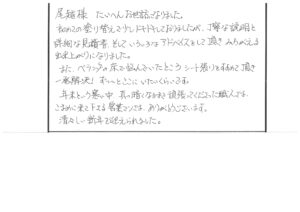 尾籠様 たいへんお世話になりました。
初めての塗り替えで少しドキドキしておりましたが、丁寧な説明と
詳細な見積書、そして いろいろなアドバイスをして頂き みちがえる
出来上がりになりました。
また、ベランダの床で悩んでいたところ シート張りをすすめて頂き
一気解決! ずーっとここにいたいくらいです。
年末という寒い中、真っ暗くなるまで頑張ってくださった職人さん、
こまめに来て下さる営業マンさん、ありがとうございます。
清々しい新年を迎えられました。